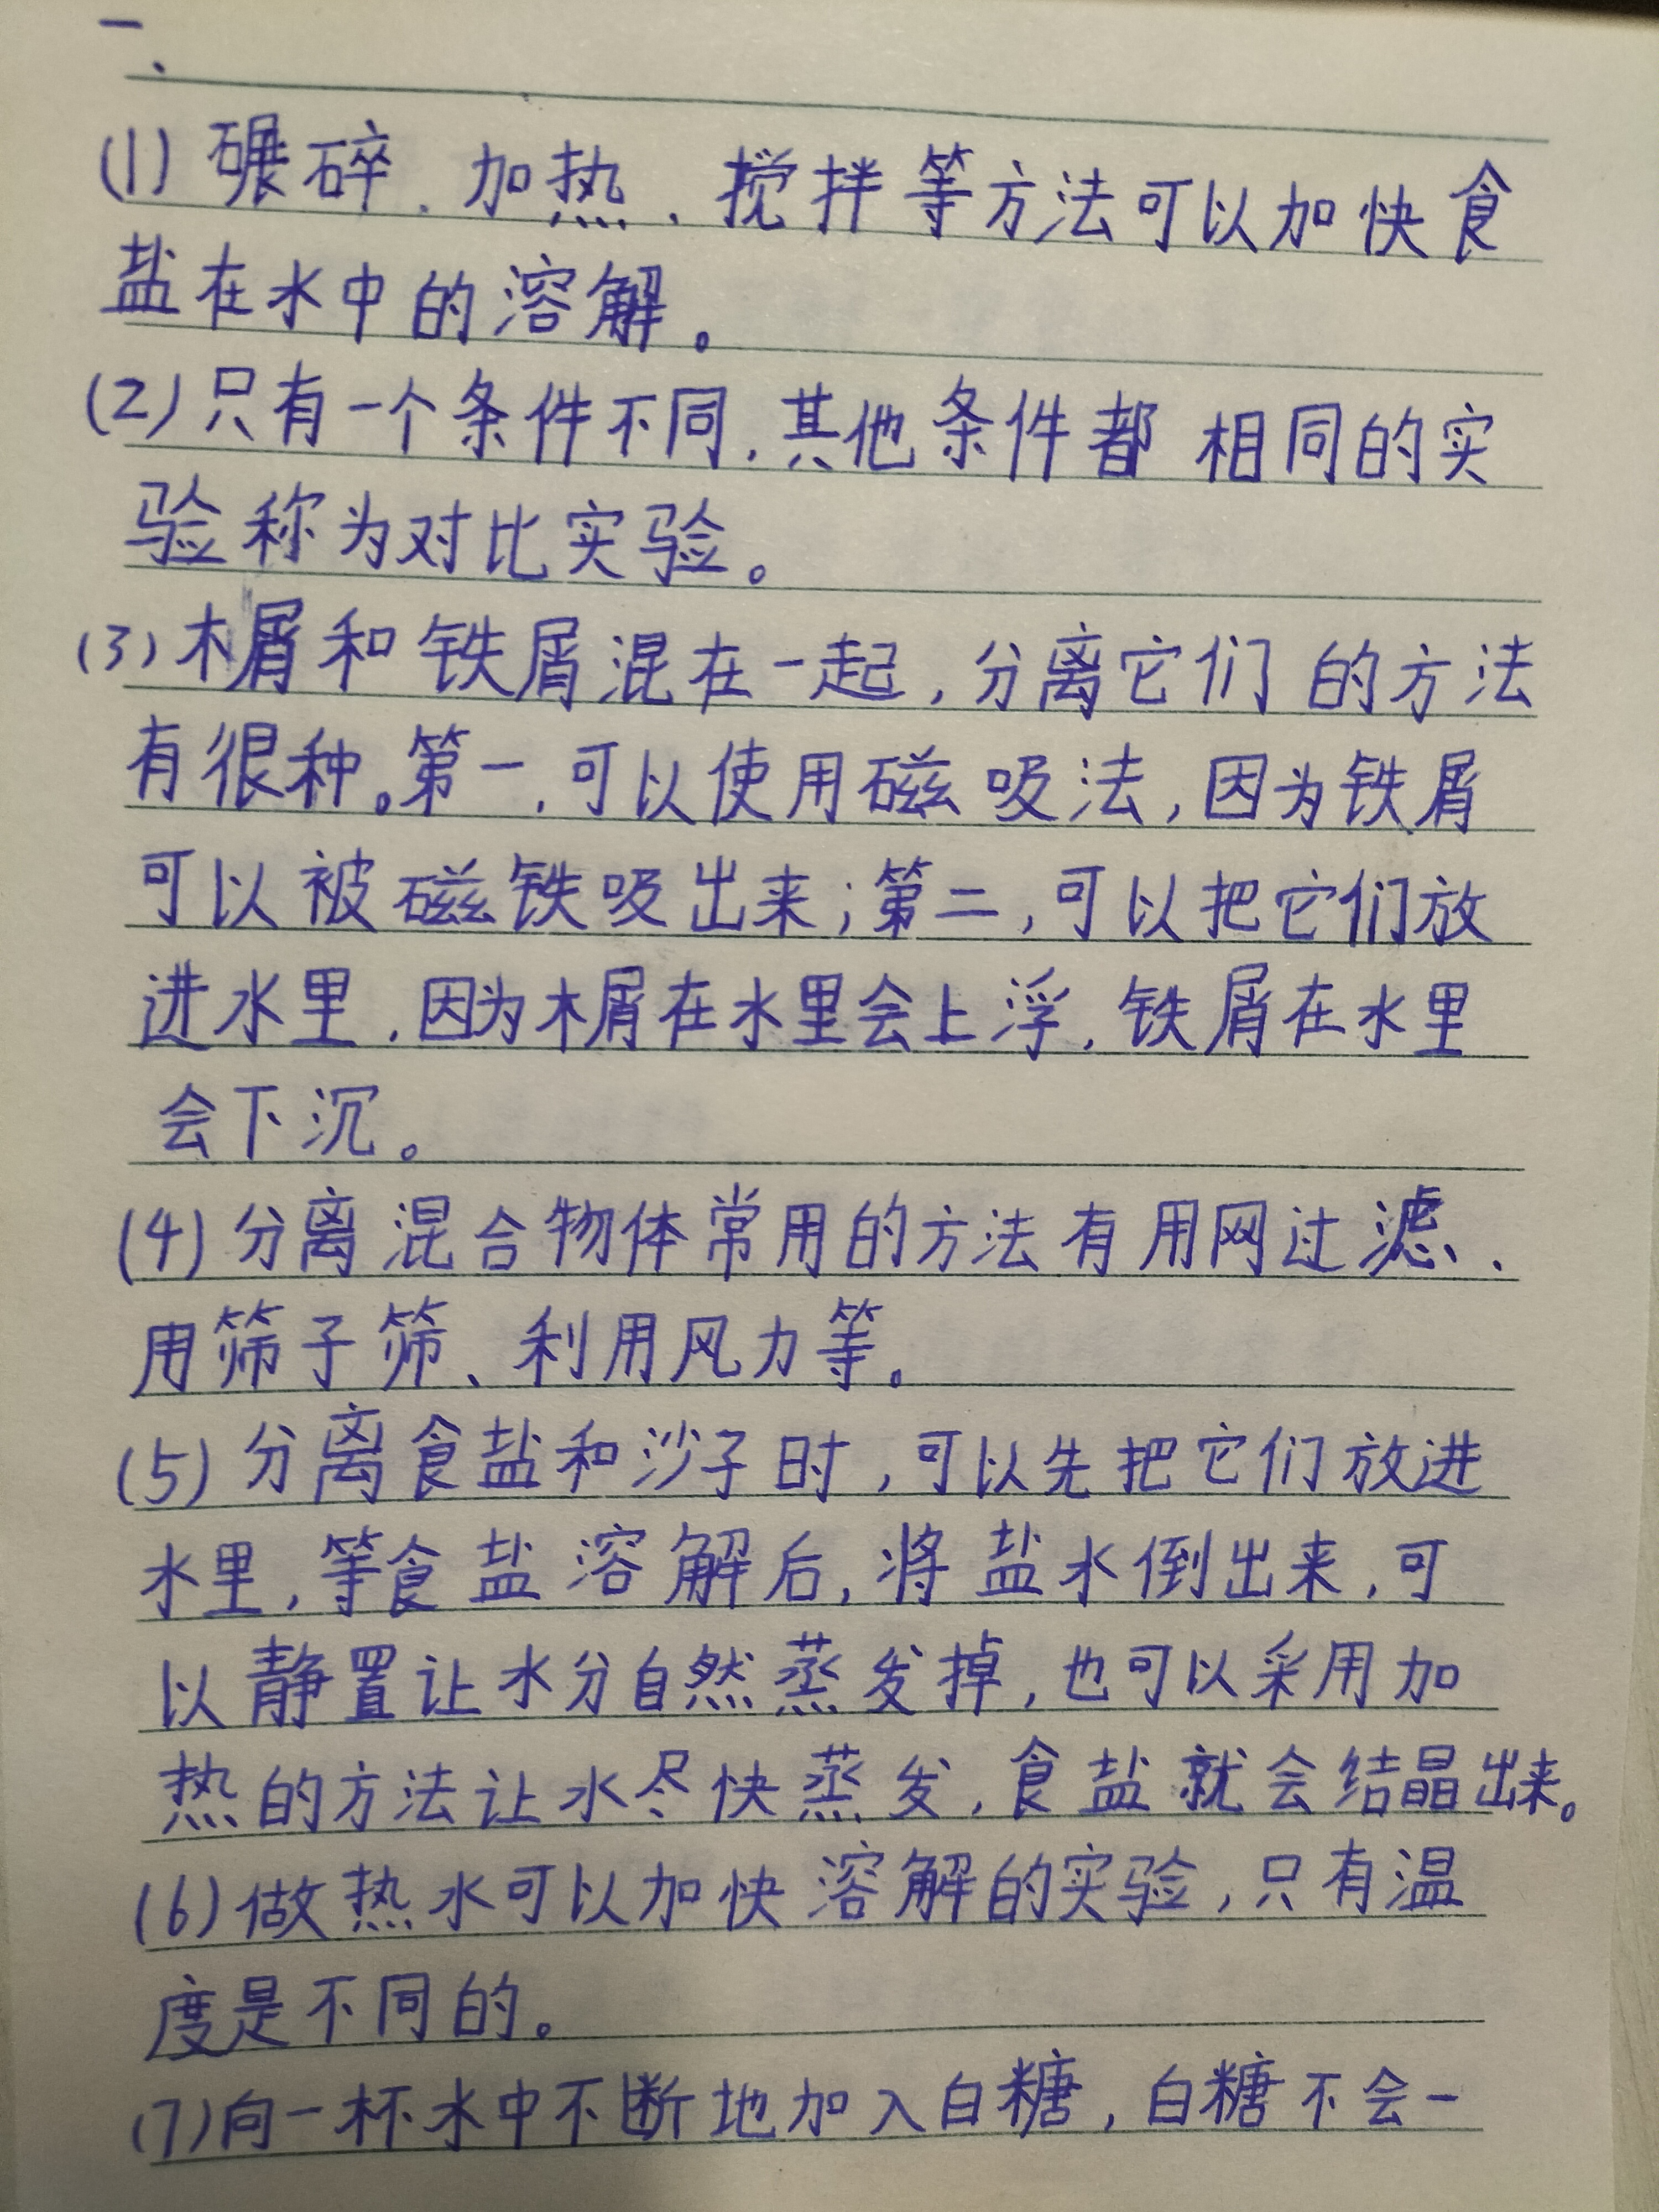 一、
(1) 碾碎、加热、搅拌等方法可以加快食
盐在水中的溶解。
(2) 只有一个条件不同,其他条件都相同的实
验称为对比实验。
(3) 木屑和铁屑混在一起,分离它们的方法
有很种。第一,可以使用磁吸法,因为铁屑
可以被磁铁吸出来;第二,可以把它们放
进水里,因为木屑在水里会上浮,铁屑在水里
会下沉。
(4) 分离混合物体常用的方法有用网过滤、
用筛子筛、利用风力等。
(5) 分离食盐和沙子时,可以先把它们放进
水里,等食盐溶解后,将盐水倒出来,可
以静置让水分自然蒸发掉,也可以采用加
热的方法让水尽快蒸发,食盐就会结晶出来。
(6) 做热水可以加快溶解的实验,只有温
度是不同的。
(7) 向一杯水中不断地加入白糖,白糖不会一